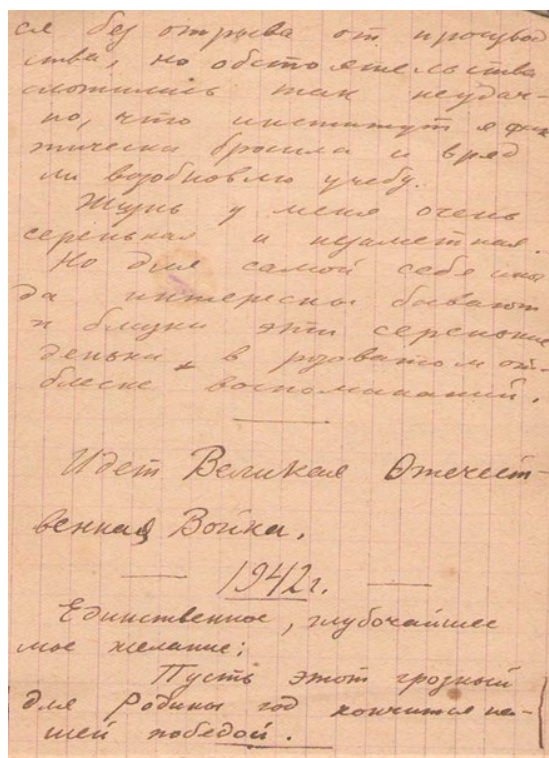 ся без отрыва от производ
ства, но обстоятельства
сложились так неудач-
но, что институт я фак
тически бросила и вряд
ли возобновлю учебу.
Жизнь у меня очень
серенькая и незаметная.
Но для самой себя иног
да интересны бывают
и близки эти серенькие
деньки в розоватом от-
блеске воспоминаний.
Идет Великая Отечест-
венная Война.
1942г.
Единственное, глубочайшее
мое желание:
Пусть этот грозный
для Родины год кончится на-
шей победой.